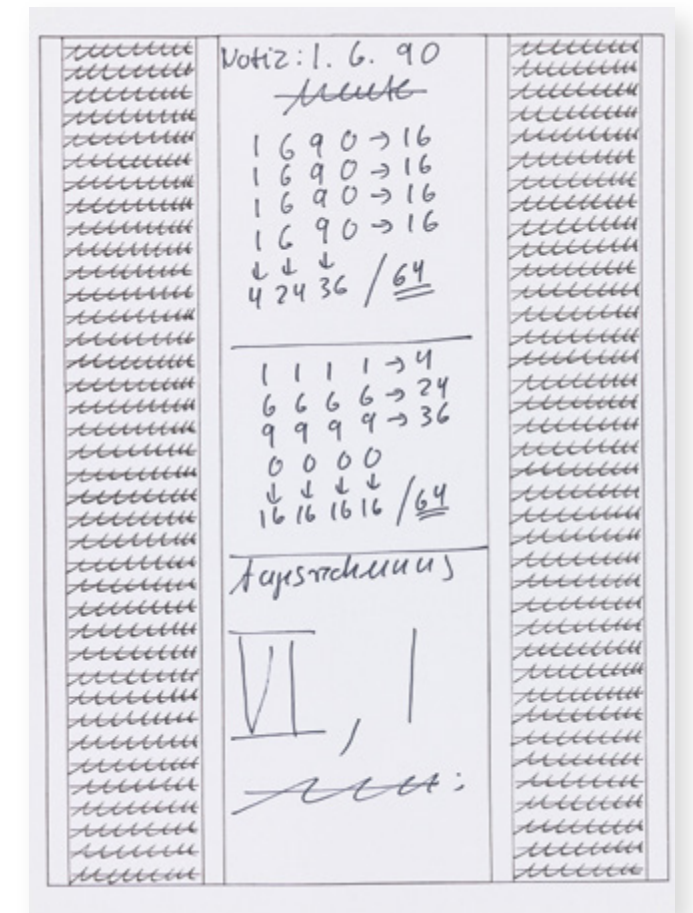 Notiz: 1. 6. 90
heute
1 6 9 0 → 16
1 6 9 0 → 16
1 6 9 0 → 16
1 6 9 0 → 16
↓ ↓ ↓
4 24 36 / 64
1 1 1 1 → 4
6 6 6 6 → 24
9 9 9 9 → 36
0 0 0 0
↓ ↓ ↓ ↓
16 16 16 16 / 64
Tagesrechnung
VI, I